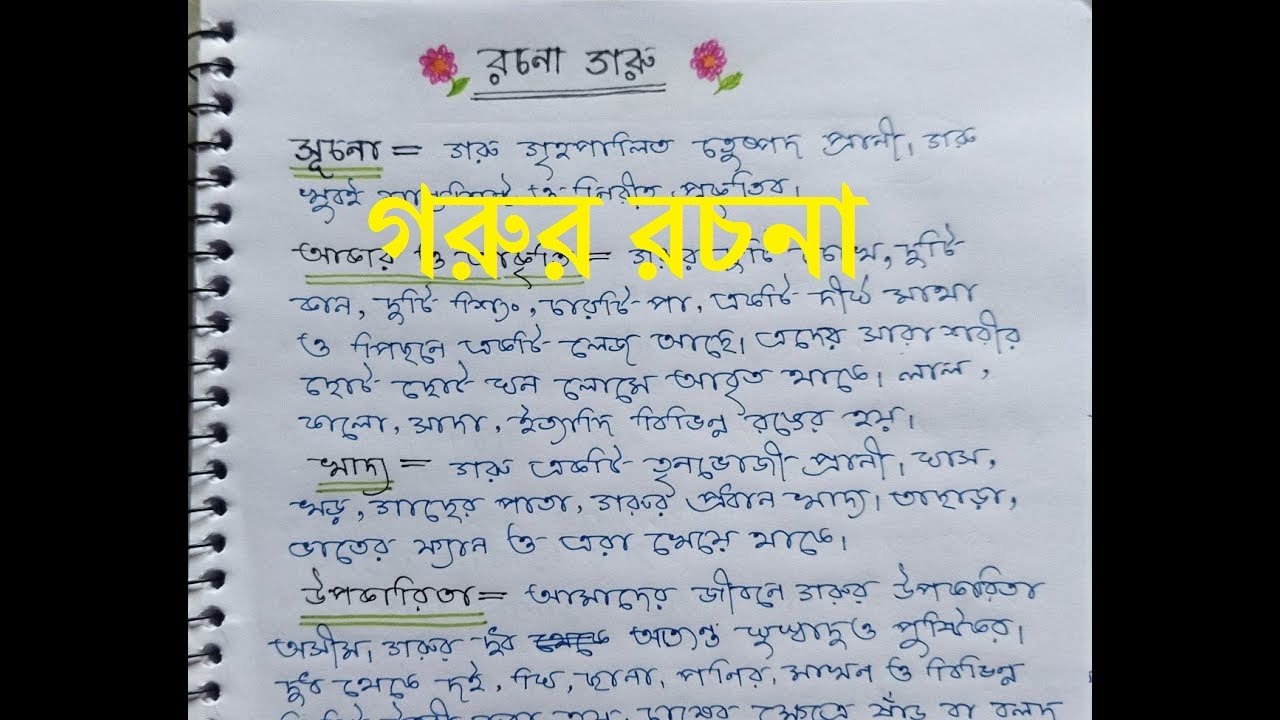 রচনা গরু
সূচনা = গরু গৃহপালিত চতুষ্পদ প্রানী। গরু
খুবই প্রকৃতির।
গরুর রচনা
আকার ও আকৃতি = গরুর দুটি চোখ, দুটি
কান, দুটি শিং, চারটি পা, একটি দীর্ঘ মাথা
ও পিছনে একটি লেজ আছে। এদের সারা শরীর
ছোট ছোট ঘন লোমে আবৃত থাকে। লাল,
কালো, সাদা, ইত্যাদি বিভিন্ন রঙের হয়।
খাদ্য = গরু একটি তৃনভোজী প্রানী। ঘাস,
খড়, গাছের পাতা, গরুর প্রধান খাদ্য। তাছাড়া,
ভাতের ফ্যান ও এরা খেয়ে থাকে।
উপকারিতা = আমাদের জীবনে গরুর উপকারিতা
অসীম। গরুর দুধ অত্যন্ত সুস্বাদু ও পুষ্টিকর।
দুধ থেকে দই, ঘি, ছানা, পনির, মাখন ও বিভিন্ন
ষাঁড় বা বলদ